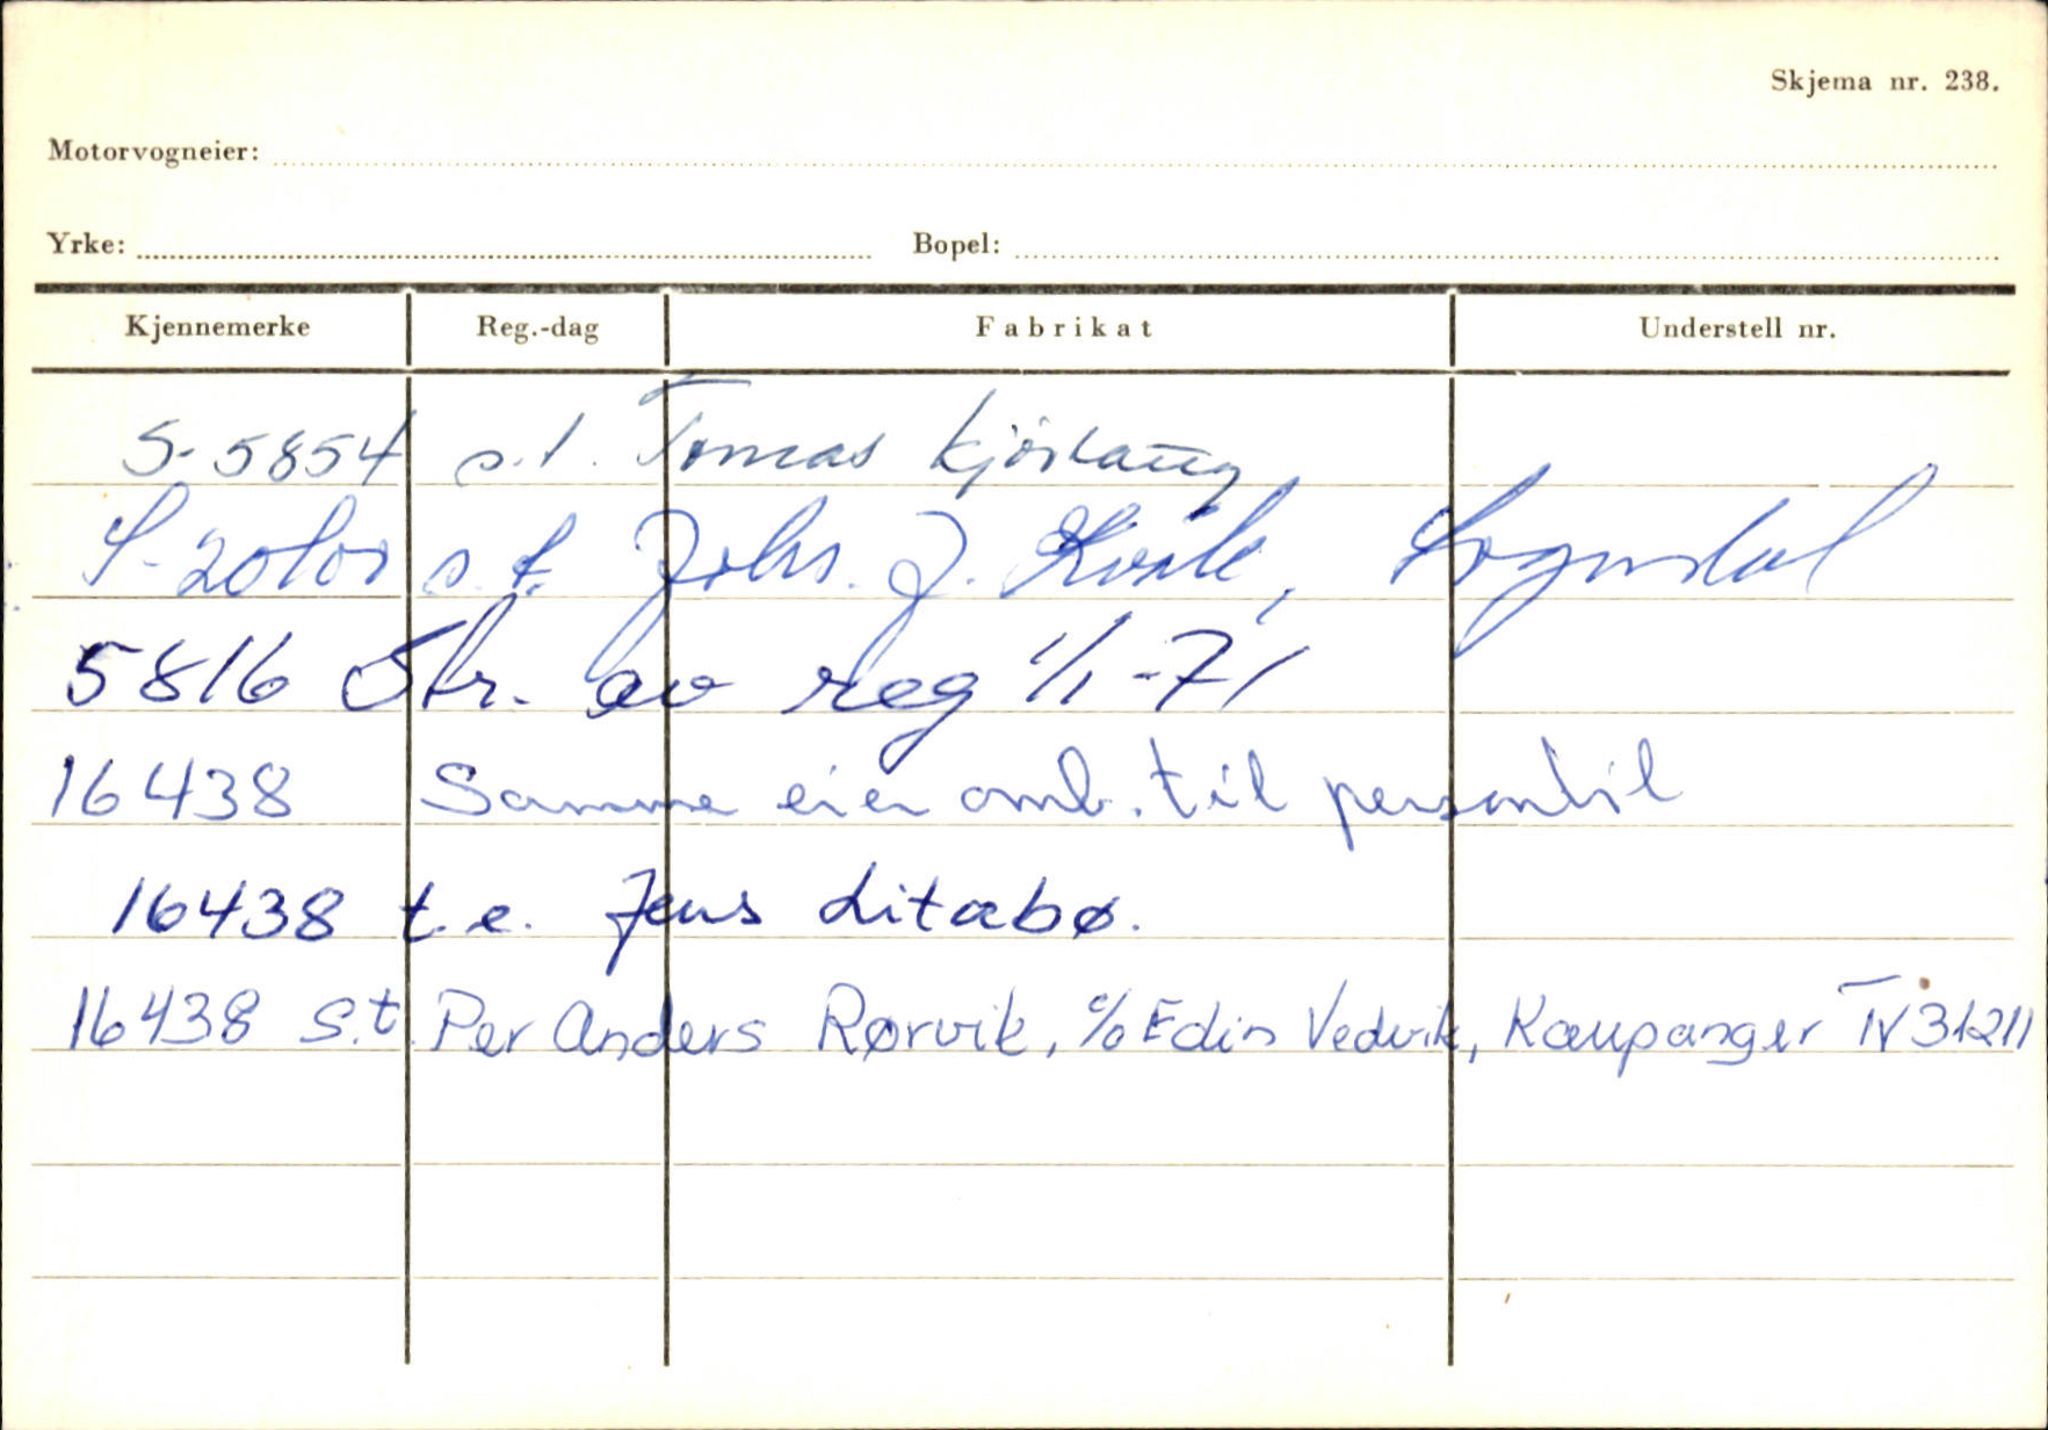 Skjema nr. 238.
Motorvogneier:
Yrke: Bopel:
Kjennemerke Reg.-dag Fabrikat Understell nr.
S-5854 s.t. Tomas
s.t. Johs. J. Kvåle, Sogndal
5816 Str. av reg 1/1-71
16438 Samme eier omb. til personbil
16438 t.e. Jens Litabø.
16438 s.t. Per Anders Rørvik, c/o Edin Vedvik, Kaupanger